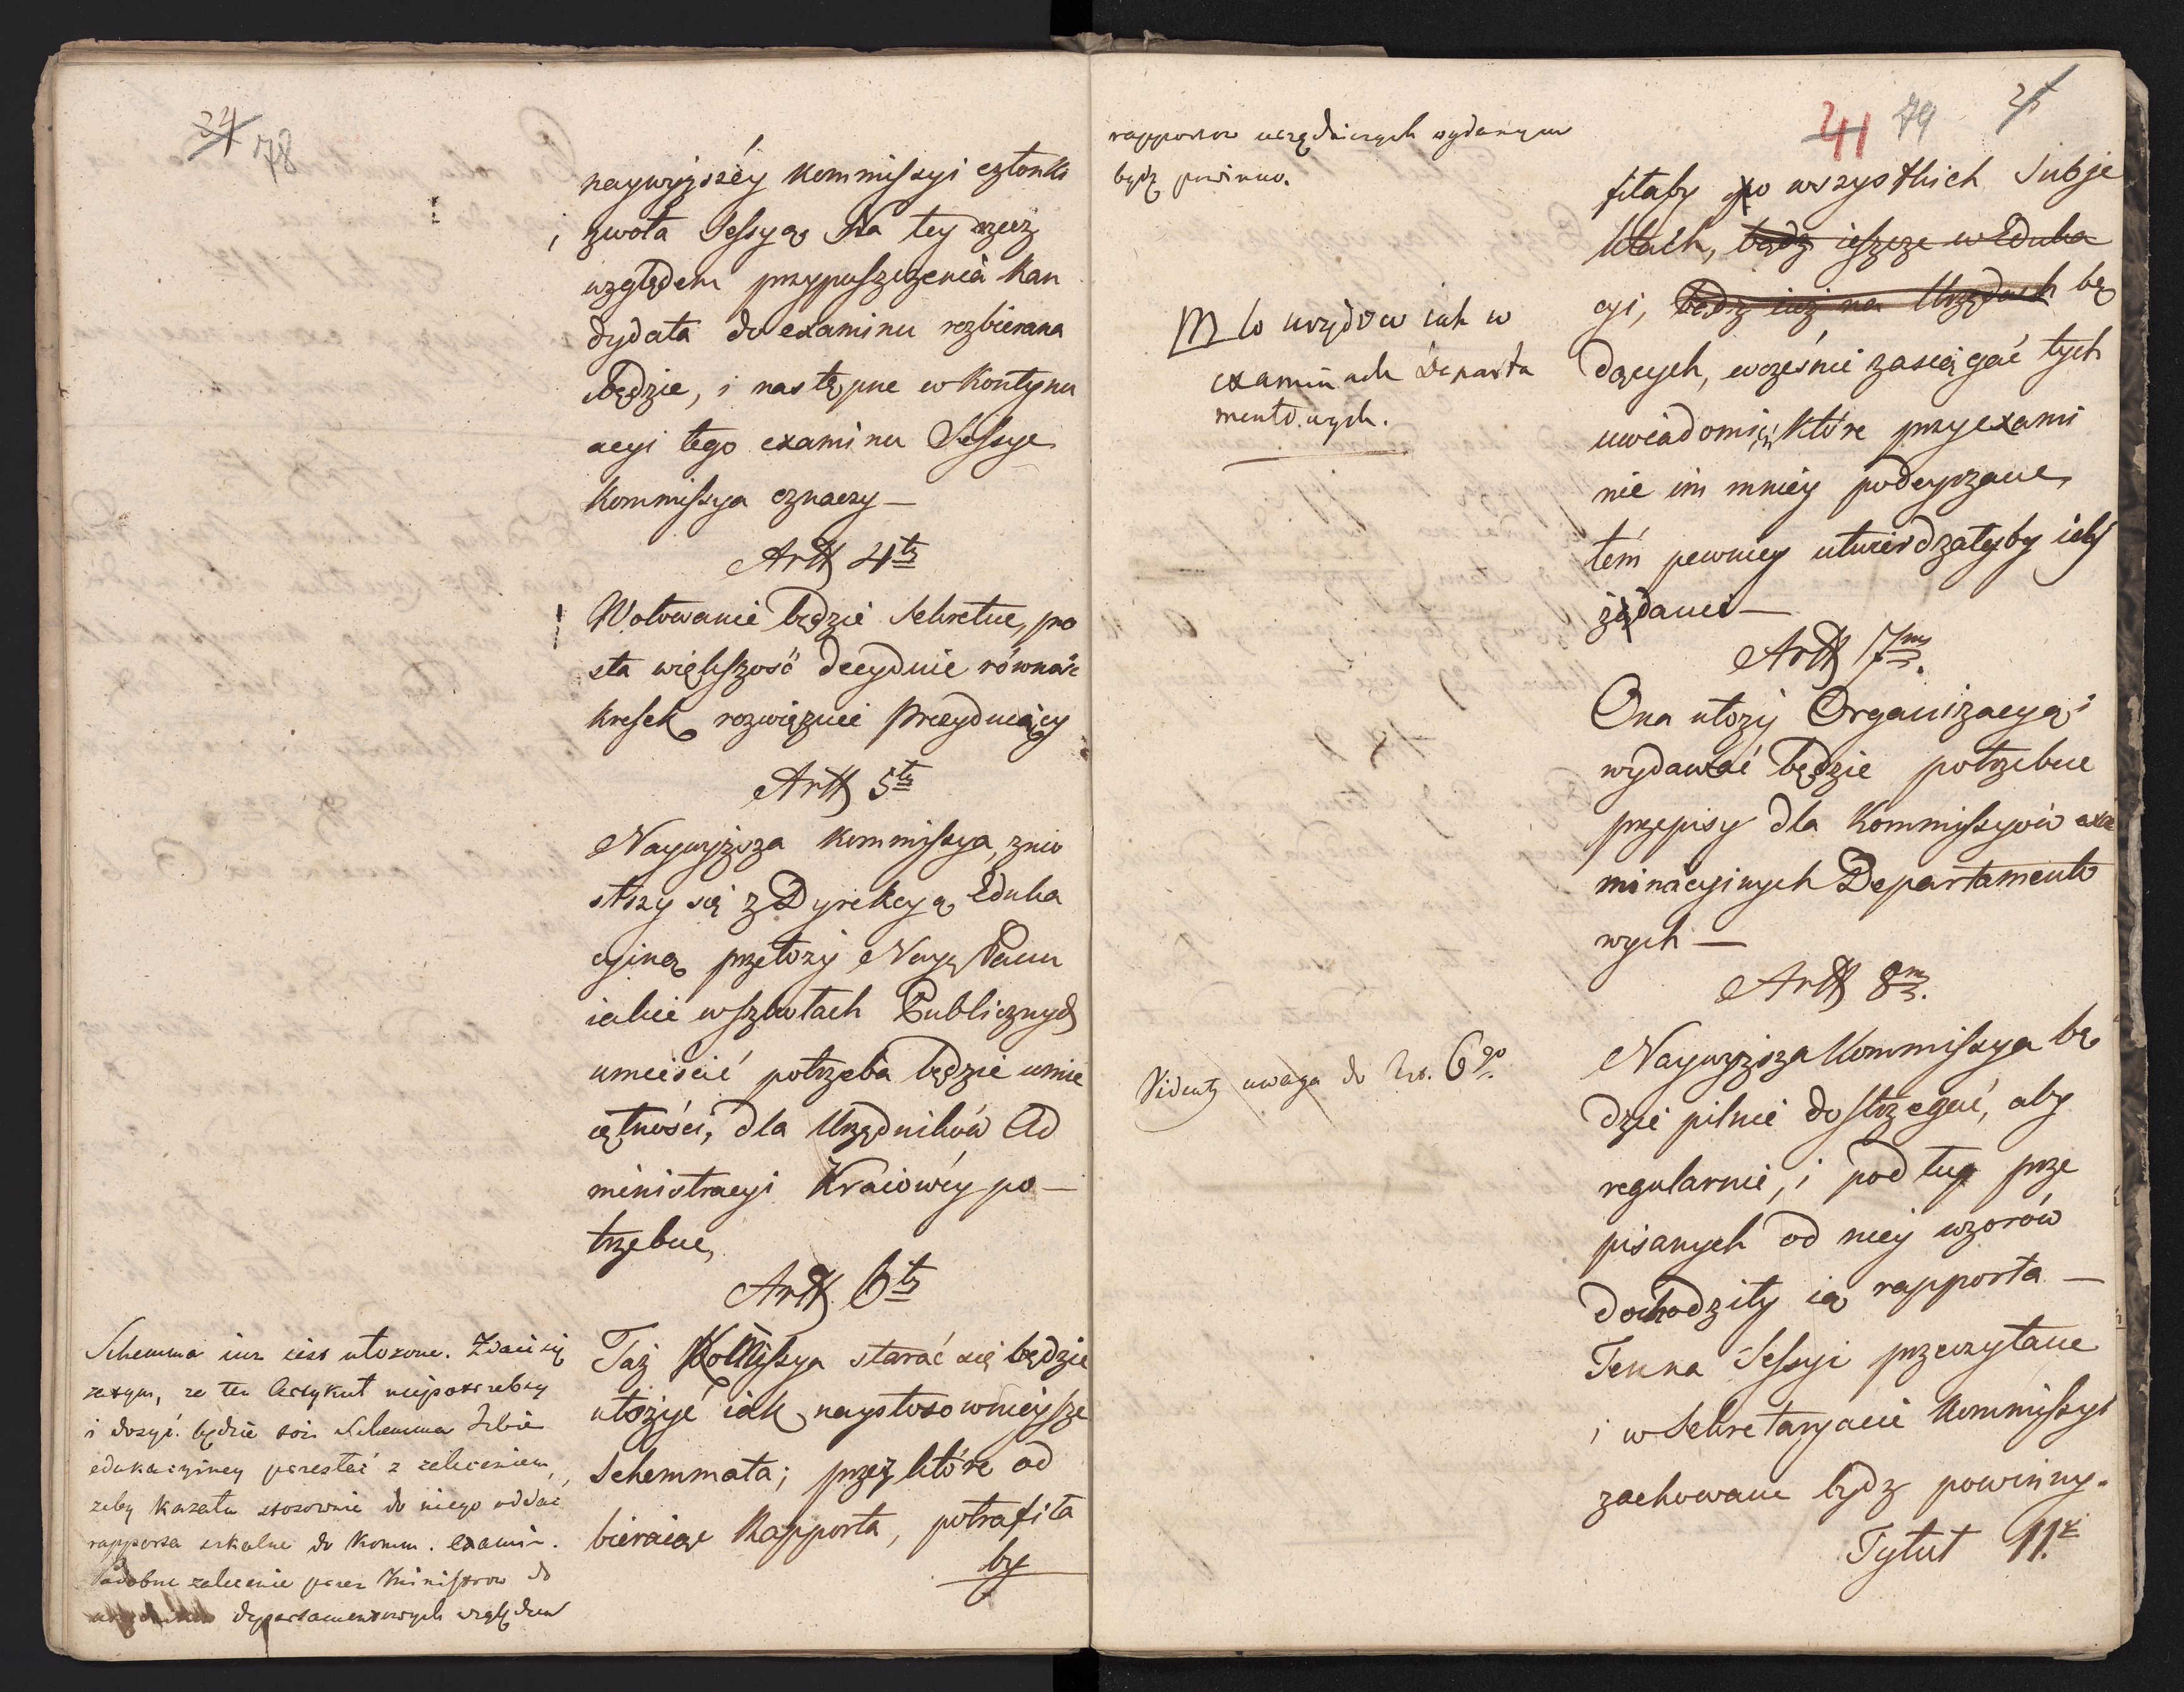 24 78
naywyższéy Kommissyi członki
i zwoła Sessyą. Na tey rzecz
względem przypuszczenia Kan
dydata do examinu rozbierana
będzie, i następne w Kontynu
acyi tego examinu Sessye
Kommissya oznaczy —
Artt 4ty
Wotowanie będzie Sekretne, pro
sta większość decyduie równość
kresek rozwiązuie Prezyduiący
Artt 5ty
Naywyższa Kommissya, znio
słszy się z Dyrekcyą Eduka
cyiną przełoży Nayj. Panu
iakie w szkołach Publicznych
umieścić potrzeba będzie umie
iętności, dla Urzędników Ad
ministracyi Kraiowéy po—
trzebne,
Artt. 6ty
Taż Kommissya starać się będzie
ułożyć iak naystosownieysze
Schemmata; przez które od
bieraiąc Rapporta, potrafiła
by
Schemma iuz iest ułozone. Zdaie się
zatym, ze ten Artykuł niepotrzebny
i dosyć będzie toż Schemma Izbie
edukacyiney przesłać z zaleceniem,
zeby kazała stosownie do niego oddać
rapporta szkolne do Komm. Examin.
Podobne zalecenie przez Ministrow do
departamentowych względem
41 79 25
rapportow urzędniczych wydanym
bydź powinno.
fiłaby po wszystkich Subje
ktach, bądz ieszcze w Eduka
cyi, bądz iuż na Urzędach bę
dących, wcześnie zasięgać tych
uwiadomień, które przy exami
nie im mniey podeyrzane,
tém pewniey utwierdzałyby ich
żądanie —
Artt 7my.
Ona ułoży Organizacyą i
wydawać będzie potrzebne
przepisy dla Kommissyów exa
minacyinych Departamento
wych —
Artt 8my.
Naywyższa Kommissya bę
dzie pilnie dostrzegać, aby
regularnie, i podług prze
pisanych od niey wzorów
dochodziły ią rapporta —
Te na Sessyi przeczytane
i w Sekretaryacie Kommissyi
zachowane bydz powinny.
Tytuł II.
to urzędów iak w
examinach Departa
mentowych.
Videatz uwaga do Art. 6go.